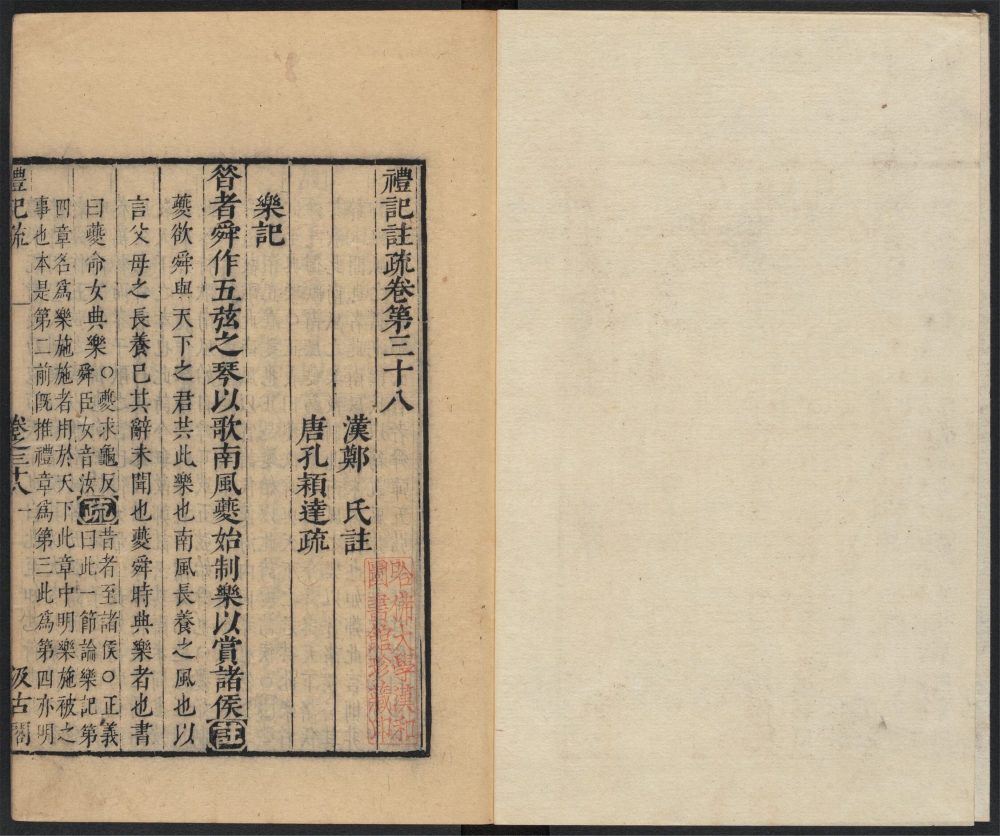 禮記註疏卷第三十八
漢鄭 氏註
唐孔穎達疏
哈佛大學漢和
圖書館珍藏印
樂記
昝者舜作五弦之琴以歌南風夔始制樂以賞諸侯註
夔欲舜與天下之君共此樂也南風長養之風也以
言父母之長養已其辭未聞也夔舜時典樂者也書
曰夔命女典樂○夔求龜反
舜臣女音汝
疏
昔者至諸侯○正義
曰此一節論樂記第
四章名爲樂施施者用於天下此章中明樂施被之
事也本是第二前旣推禮章爲第三此爲第四亦明
禮記疏
卷之三十八
一
汲古閣